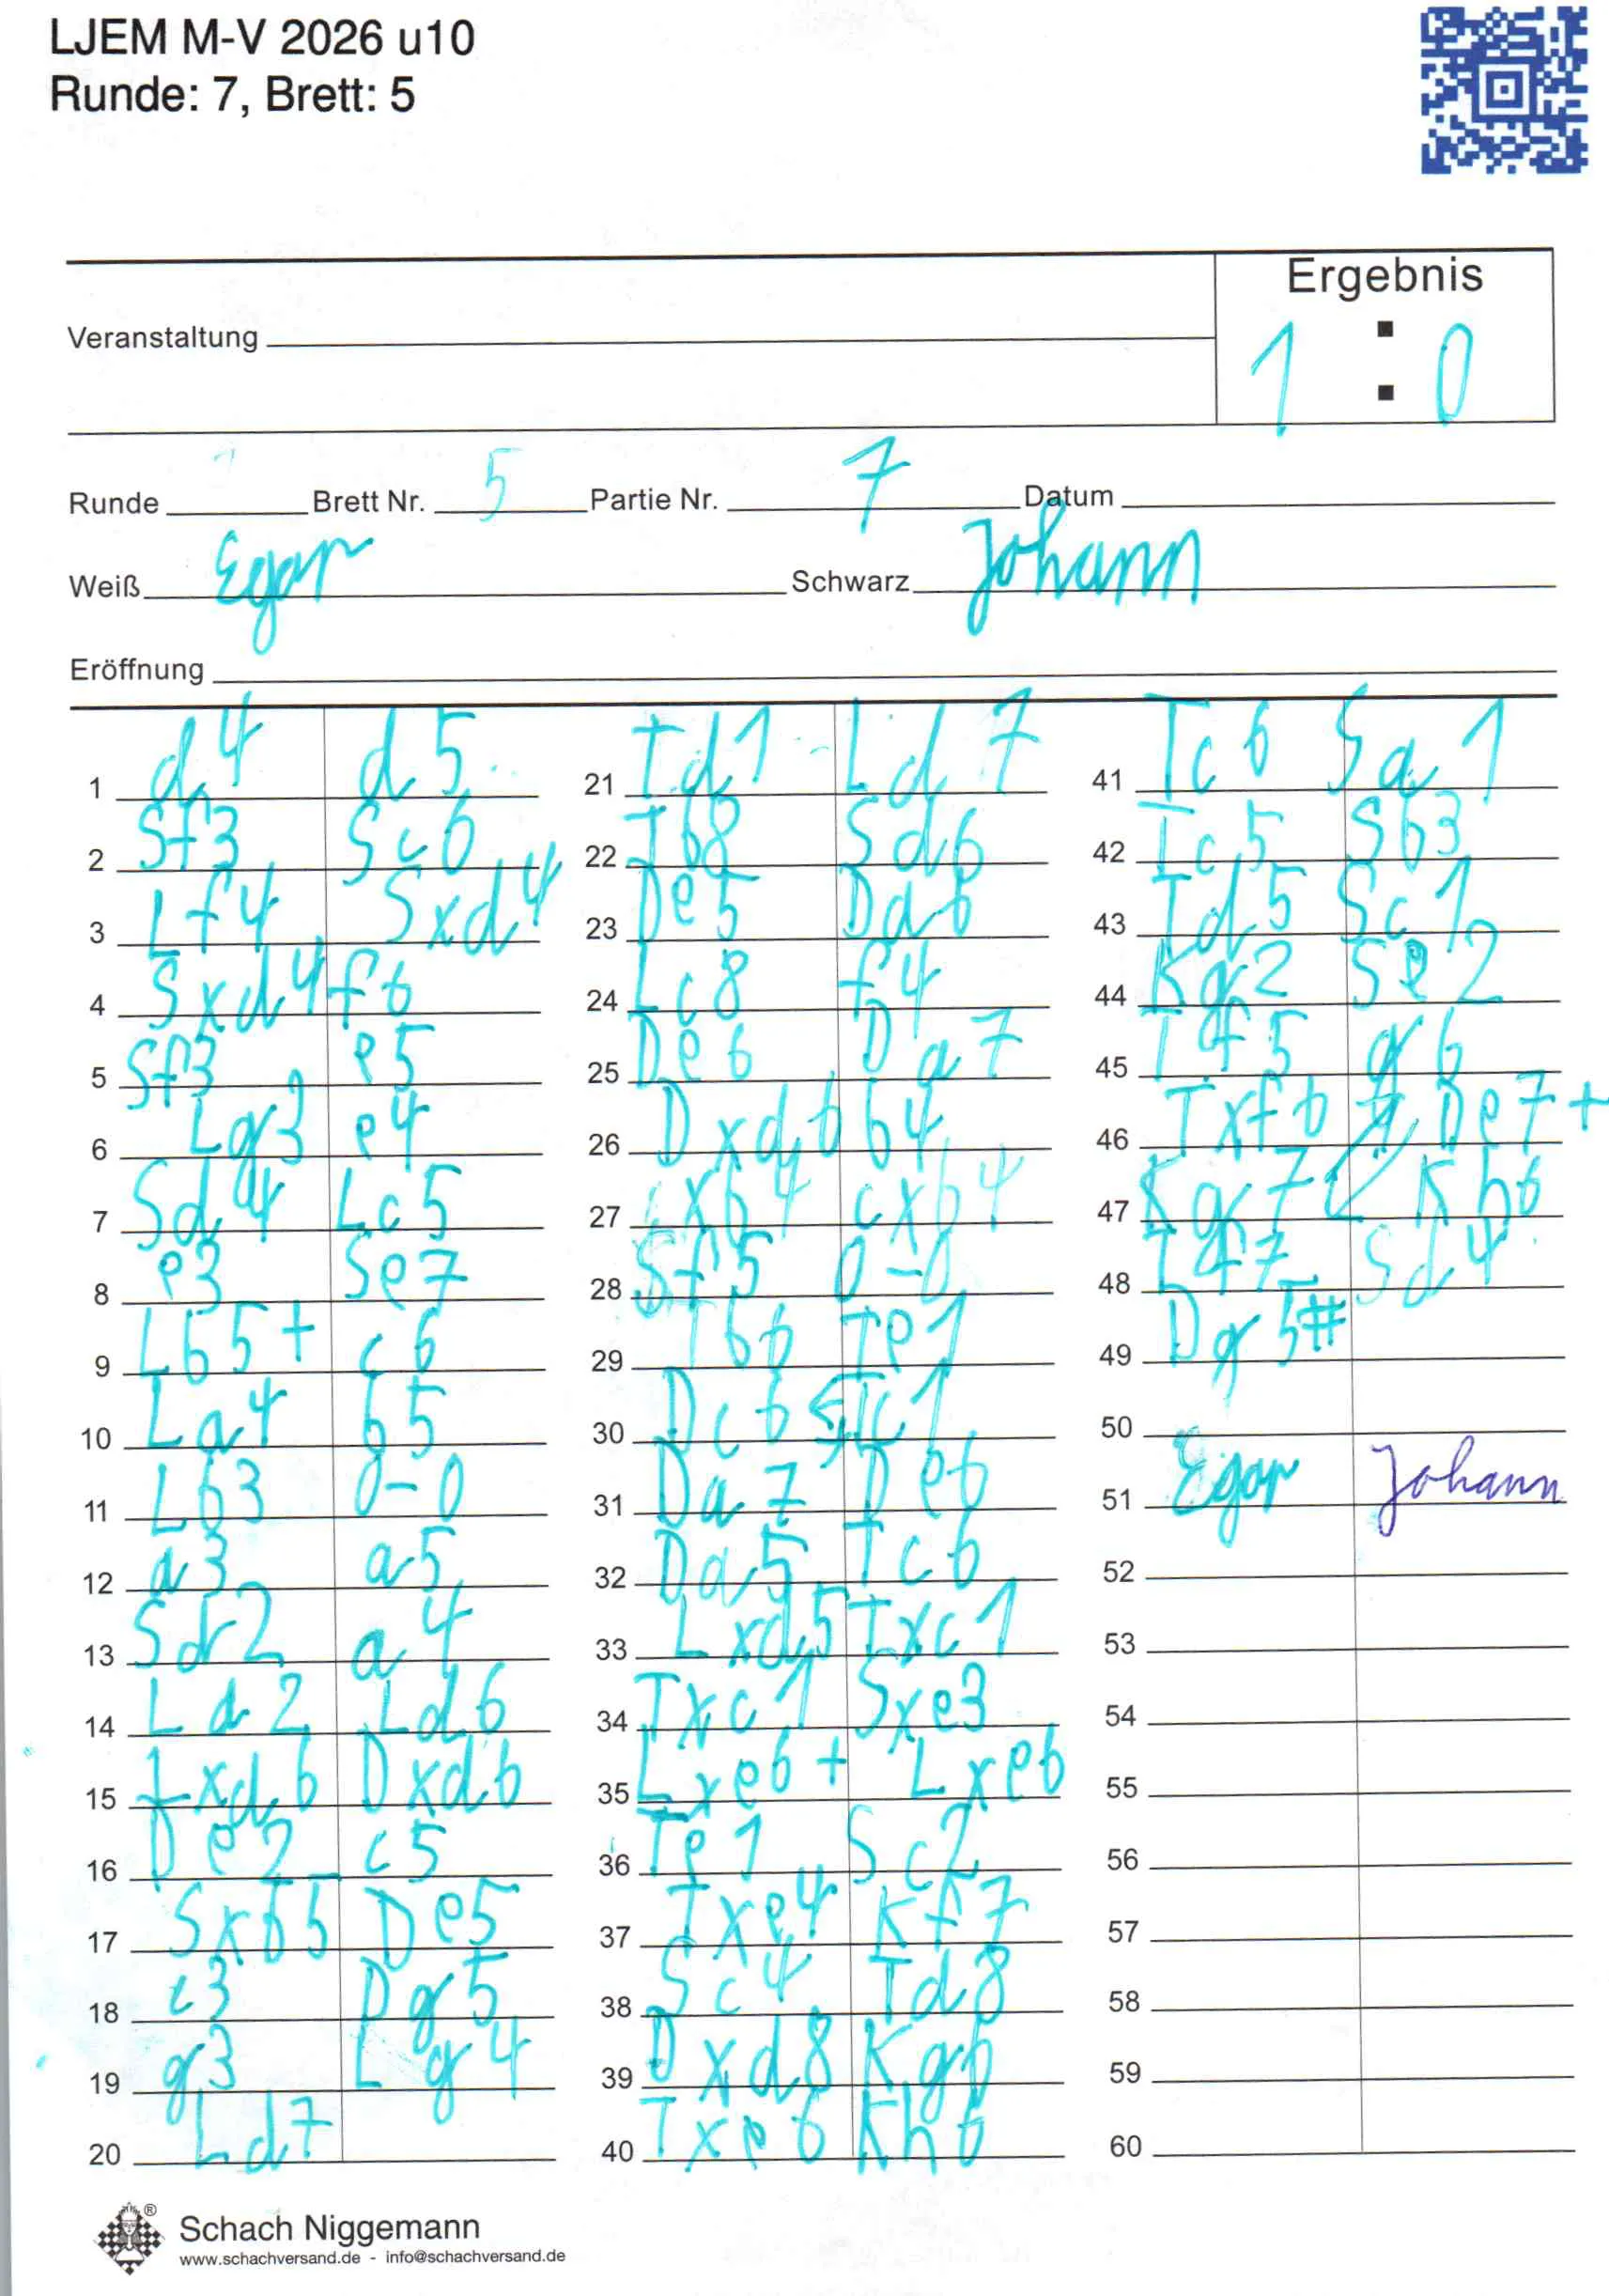 LJEM M-V 2026 u10
Runde: 7, Brett: 5
Ergebnis
Veranstaltung
1 : 0
Runde Brett Nr. 5 Partie Nr. 7 Datum
Weiß Egor Schwarz Johann
Eröffnung
1 d4 d5
2 Sf3 Sc6
3 Lf4 Sxd4
4 Sxd4 f6
5 Sf3 e5
6 Lg3 e4
7 Sd4 Lc5
8 e3 Se7
9 Lb5+ c6
10 La4 b5
11 Lb3 0-0
12 a3 a5
13 Sd2 a4
14 La2 Ld6
15 Lxd6 Dxd6
16 De2 c5
17 Sxb5 De5
18 c3 Dg5
19 g3 Lg4
20 Ld7
21 Td1 Ld7
22 Tb8 Sd6
23 De5 Dd6
24 Lc8 f4
25 De6 Da7
26 Dxd6 b4
27 cxb4 cxb4
28 Sf5 0-0
29 Tb6 Te1
30 Dc6 Tc1
31 Da7 De6
32 Da5 Tc6
33 Lxd5 Txc1
34 Txc1 Sxe3
35 Lxe6+ Lxe6
36 Te1 Sc2
37 Txe4 Kf7
38 Sc4 Td8
39 Dxd8 Kg6
40 Txe6 Kh6
41 Tc6 Sa1
42 Tc5 Sb3
43 Td5 Sc1
44 Kg2 Se2
45 Tf5 g6
46 Txf6 De7+
47 Kg7 Kh6
48 Tf7 Sd4
49 Dg5#
50
51 Egor Johann
52
53
54
55
56
57
58
59
60
Schach Niggemann
www.schachversand.de - info@schachversand.de